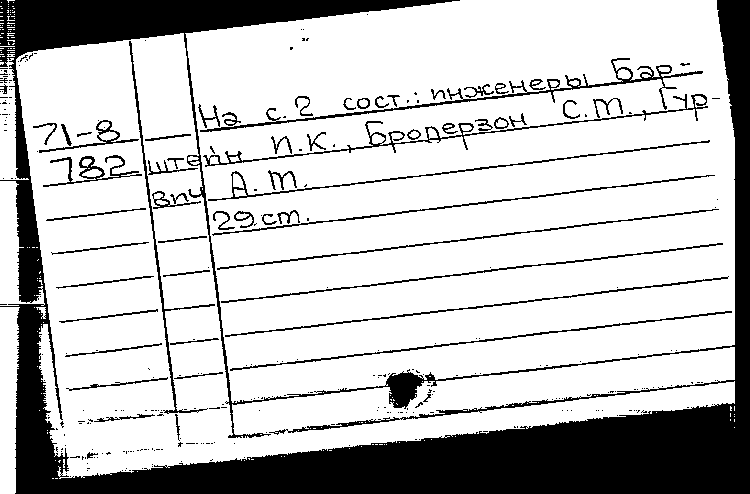 71-8 На с. 2 сост.: инженеры Бар-
782 штейн И.К., Бродерзон С.М., Гур-
вич А.М.
29 cm.